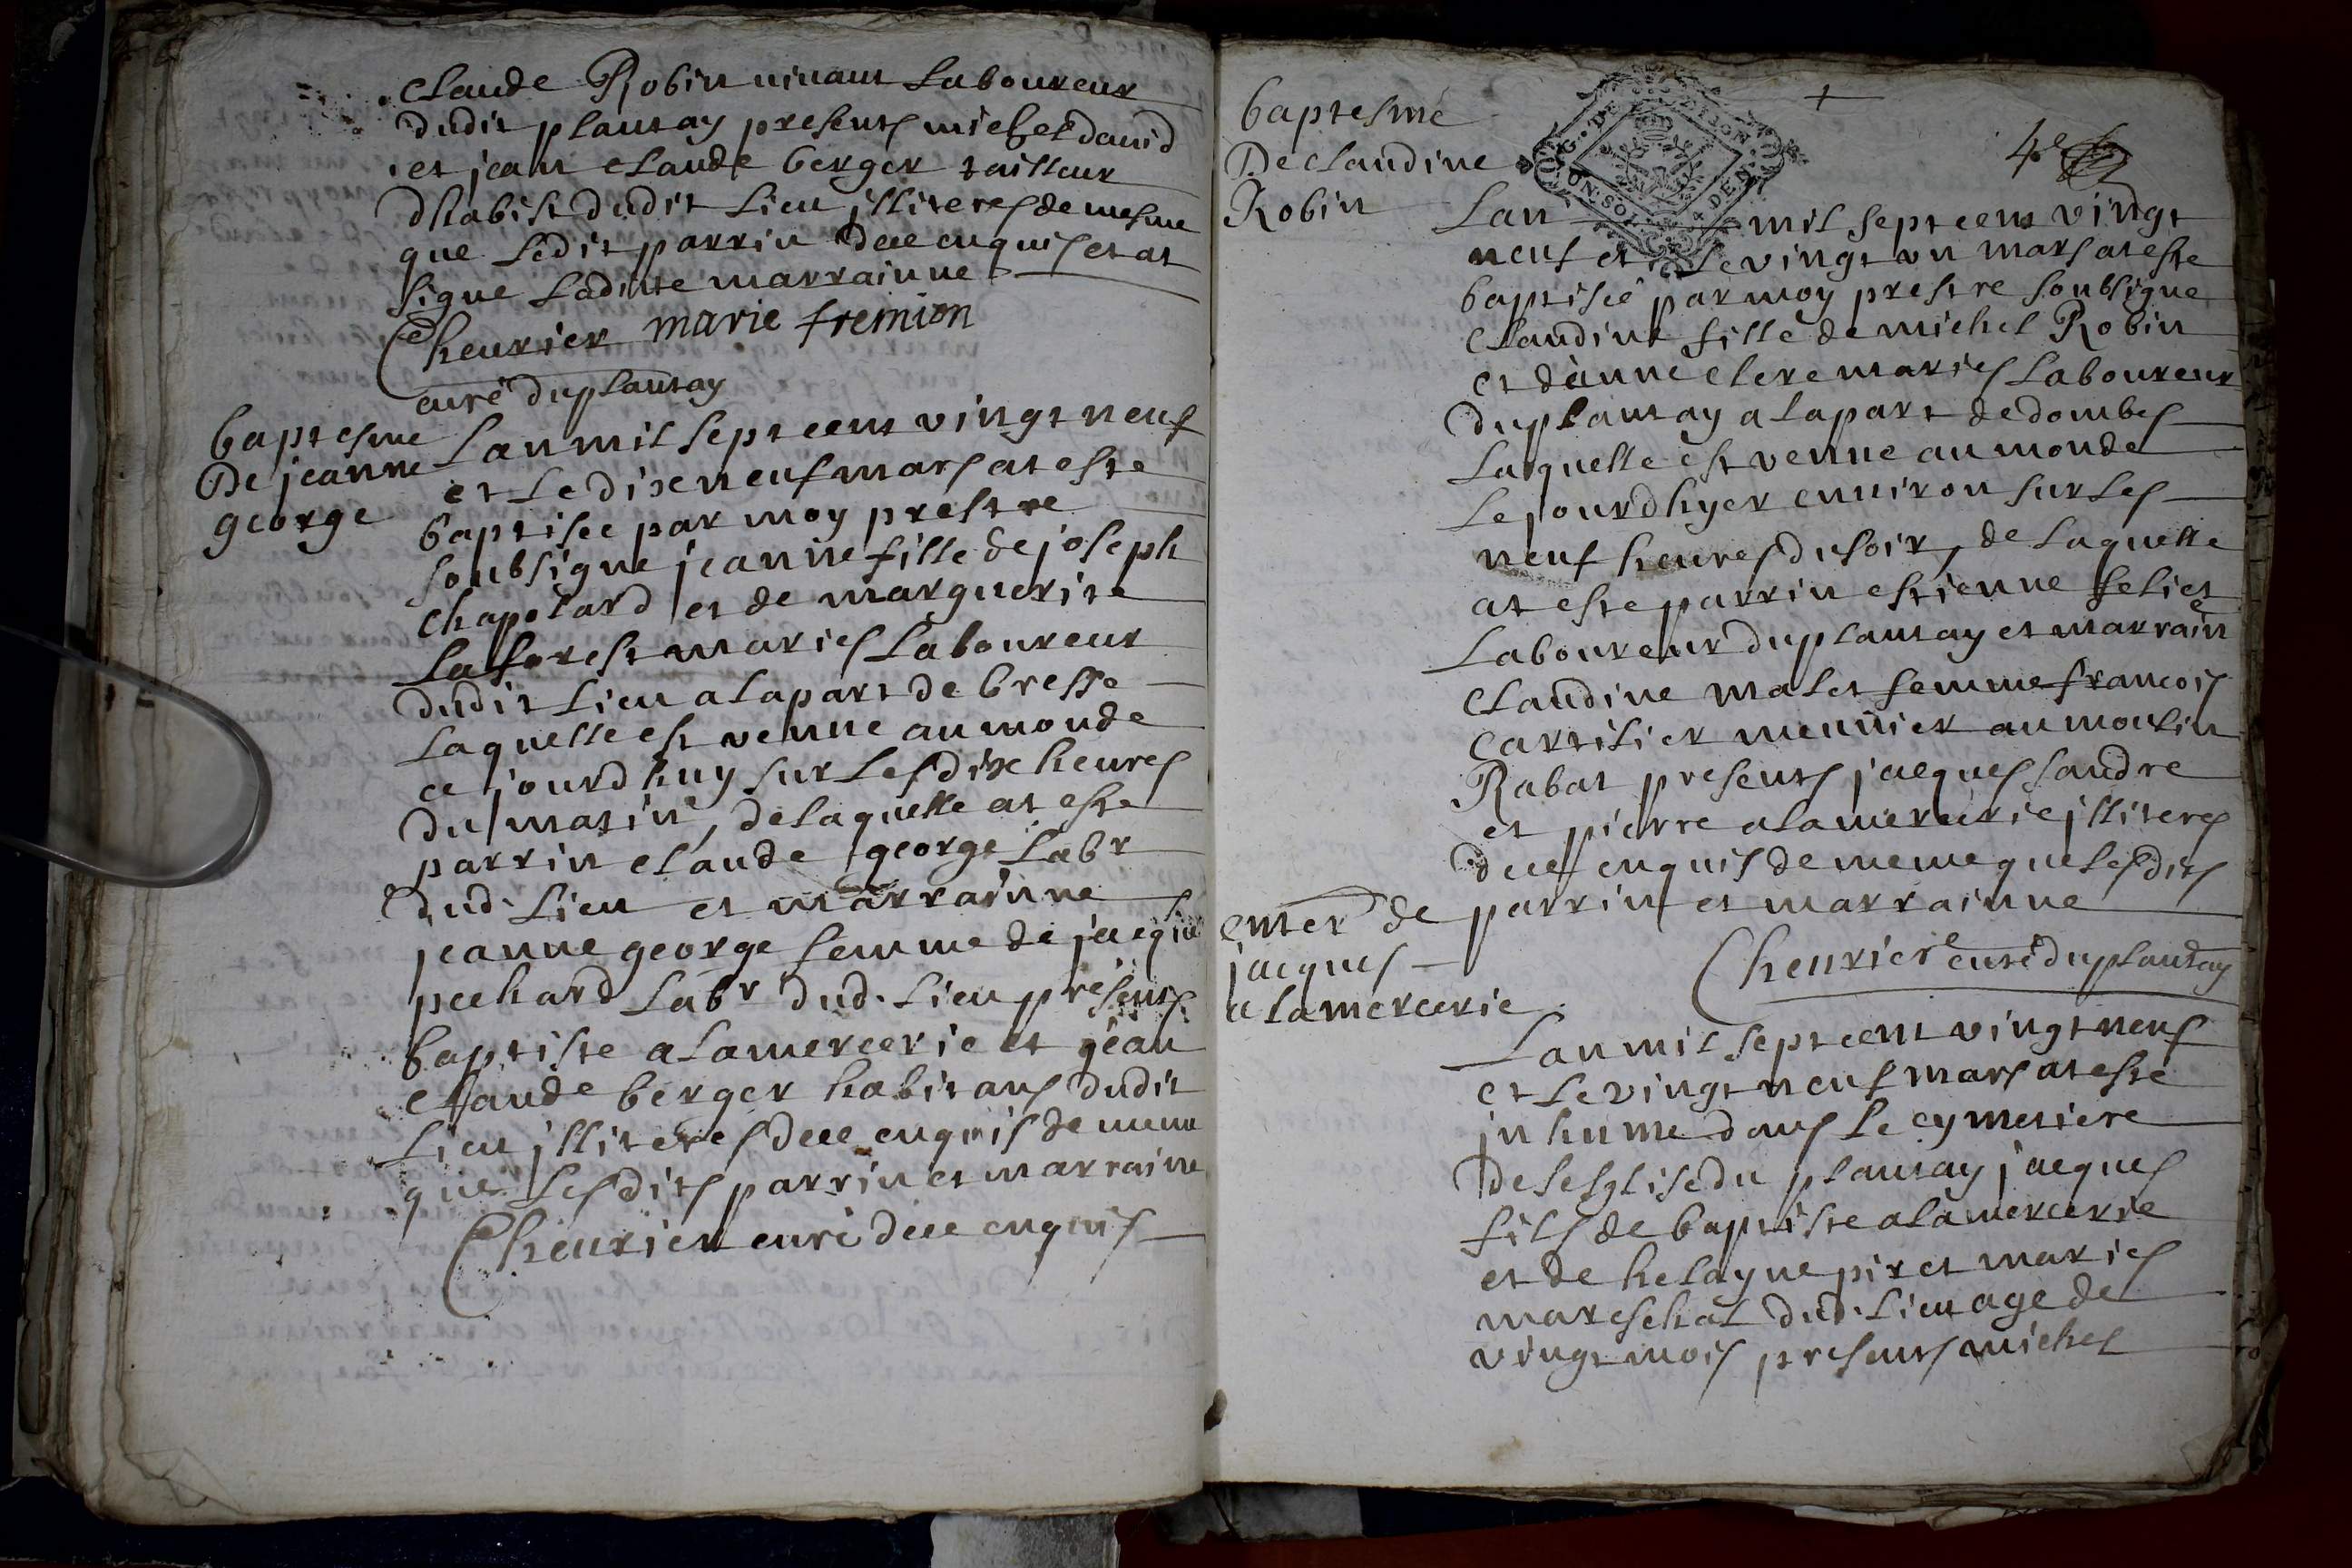 Claude Robin vivant Laboureur
dudit plantay presents michel david
et jean claude berger tailleur
dhabist dudit Lieu jlliteres de mesme
que Ledit parrin dece enquis et at
signe Laditte marrainne
Cheurier marie fremion
curé duplantay
baptesme
De jeanne
george
Lan mil sept cent vingt neuf
et Le dixneuf mars at este
baptisee par moy prestre
soubsigne jeanne fille de joseph
Chapolard et de marguerite
Laforest maries Laboureur
dudit Lieu a La part de bresse
Laquelle est venue au monde
ce jourdhuy sur Les dix heures
du matin, de Laquelle at este
parrin claude george Labr
dud. Lieu et marrainne
jeanne george femme de jacque
pechard Labr dud. Lieu presents
baptiste alamercerie et jean
claude berger habitans dudit
Lieu jlliteres dece enquis de meme
que Lesdits parrin et marraine
Cheurier curé dece enquis
baptesme
De claudine
Robin
4e
G. DE DIJON
UN. SOL 4 DEN
Lan mil sept cent vingt
neuf et Le vingt un mars at este
baptisée par moy prestre soubsigne
claudine fille de michel Robin
et danne clere maries Laboureur
duplantay a La part de dombes
Laquelle est venue au monde
Le jourdhyer environ sur Les
neuf heures du soir, de Laquelle
at este parrin estienne feliet
Laboureur duplantay et marrain
claudine malet femme francois
Cartilier meunier au moulin
Rabat presents jacques sandre
et pierre alamercerie jlliteres
dece enquis de meme que Lesdits
parrin et marrainne
Cheurier curé duplantay
enter de
jacques
alamercerie
Lan mil sept cent vingt neuf
et Le vingt neuf mars at este
jnhume dans Le cymetiere
de Lesglise du plantay jacques
fils de baptiste alamercerie
et de helayne piret maries
mareschal dud. Lieu age de
vingt mois presents michel